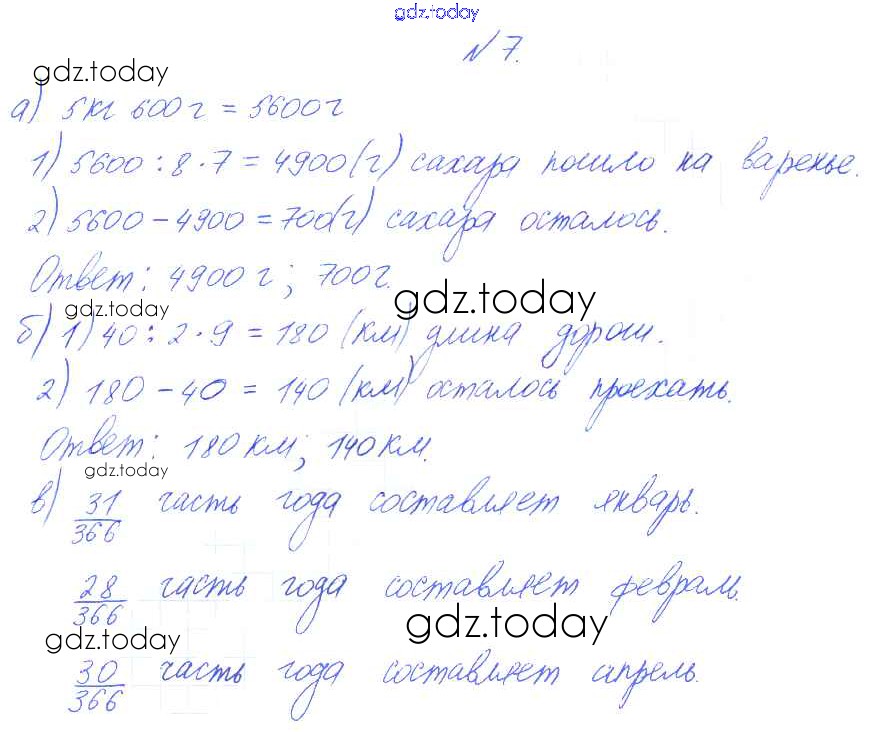 gdz.today
№7.
gdz.today
а) 5кг 600г = 5600г
1) 5600 : 8 · 7 = 4900 (г) сахара пошло на варенье.
2) 5600 - 4900 = 700 (г) сахара осталось.
Ответ: 4900 г; 700г.
gdz.today
gdz.today
б) 1) 40 : 2 · 9 = 180 (км) длина дороги.
2) 180 - 40 = 140 (км) осталось проехать.
Ответ: 180 км; 140 км.
gdz.today
в) 31/366 часть года составляет январь.
28/366 часть года составляет февраль.
gdz.today
gdz.today
30/366 часть года составляет апрель.